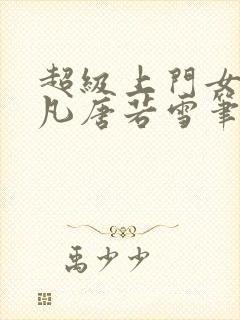 超級上門女
凡唐若雪筆
禹少少